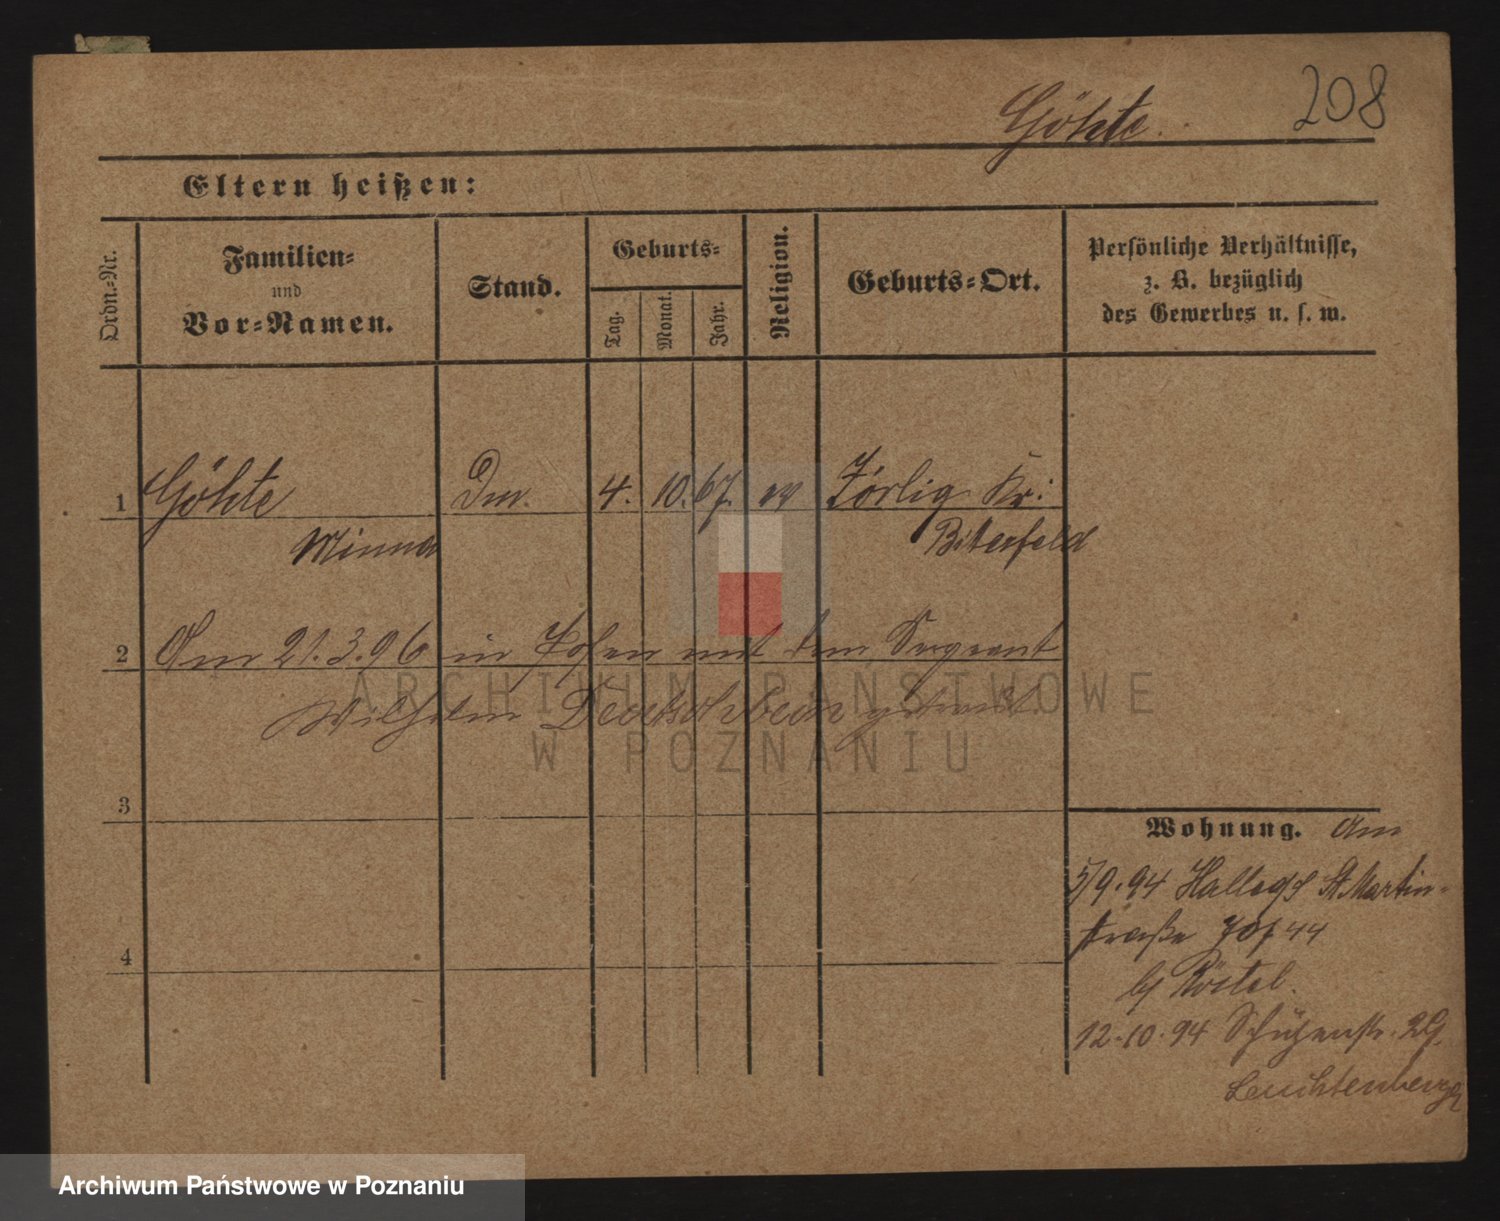 208
Göhte.
Eltern heißen:
Ordn.-Nr.
Familien-
und
Vor-Namen.
Stand.
Geburts-
Tag.
Monat.
Jahr.
Religion.
Geburts-Ort.
Persönliche Verhältnisse,
z. B. bezüglich
des Gewerbes u. s. w.
1 Göhte 4. 10. 67. ev Zörbig Kr:
Minna Biterfeld
2 Am 21.3.96 in Posen mit dem Sergeant
Wilhelm Deutschbein getraut.
ARCHIWUM PAŃSTWOWE
W POZNANIU
3
4
Wohnung. Am
5/9.94 St. Martin-
straße 44
b/
12.10.94 Schützenstr. 29.
Leuchtenberger
Archiwum Państwowe w Poznaniu